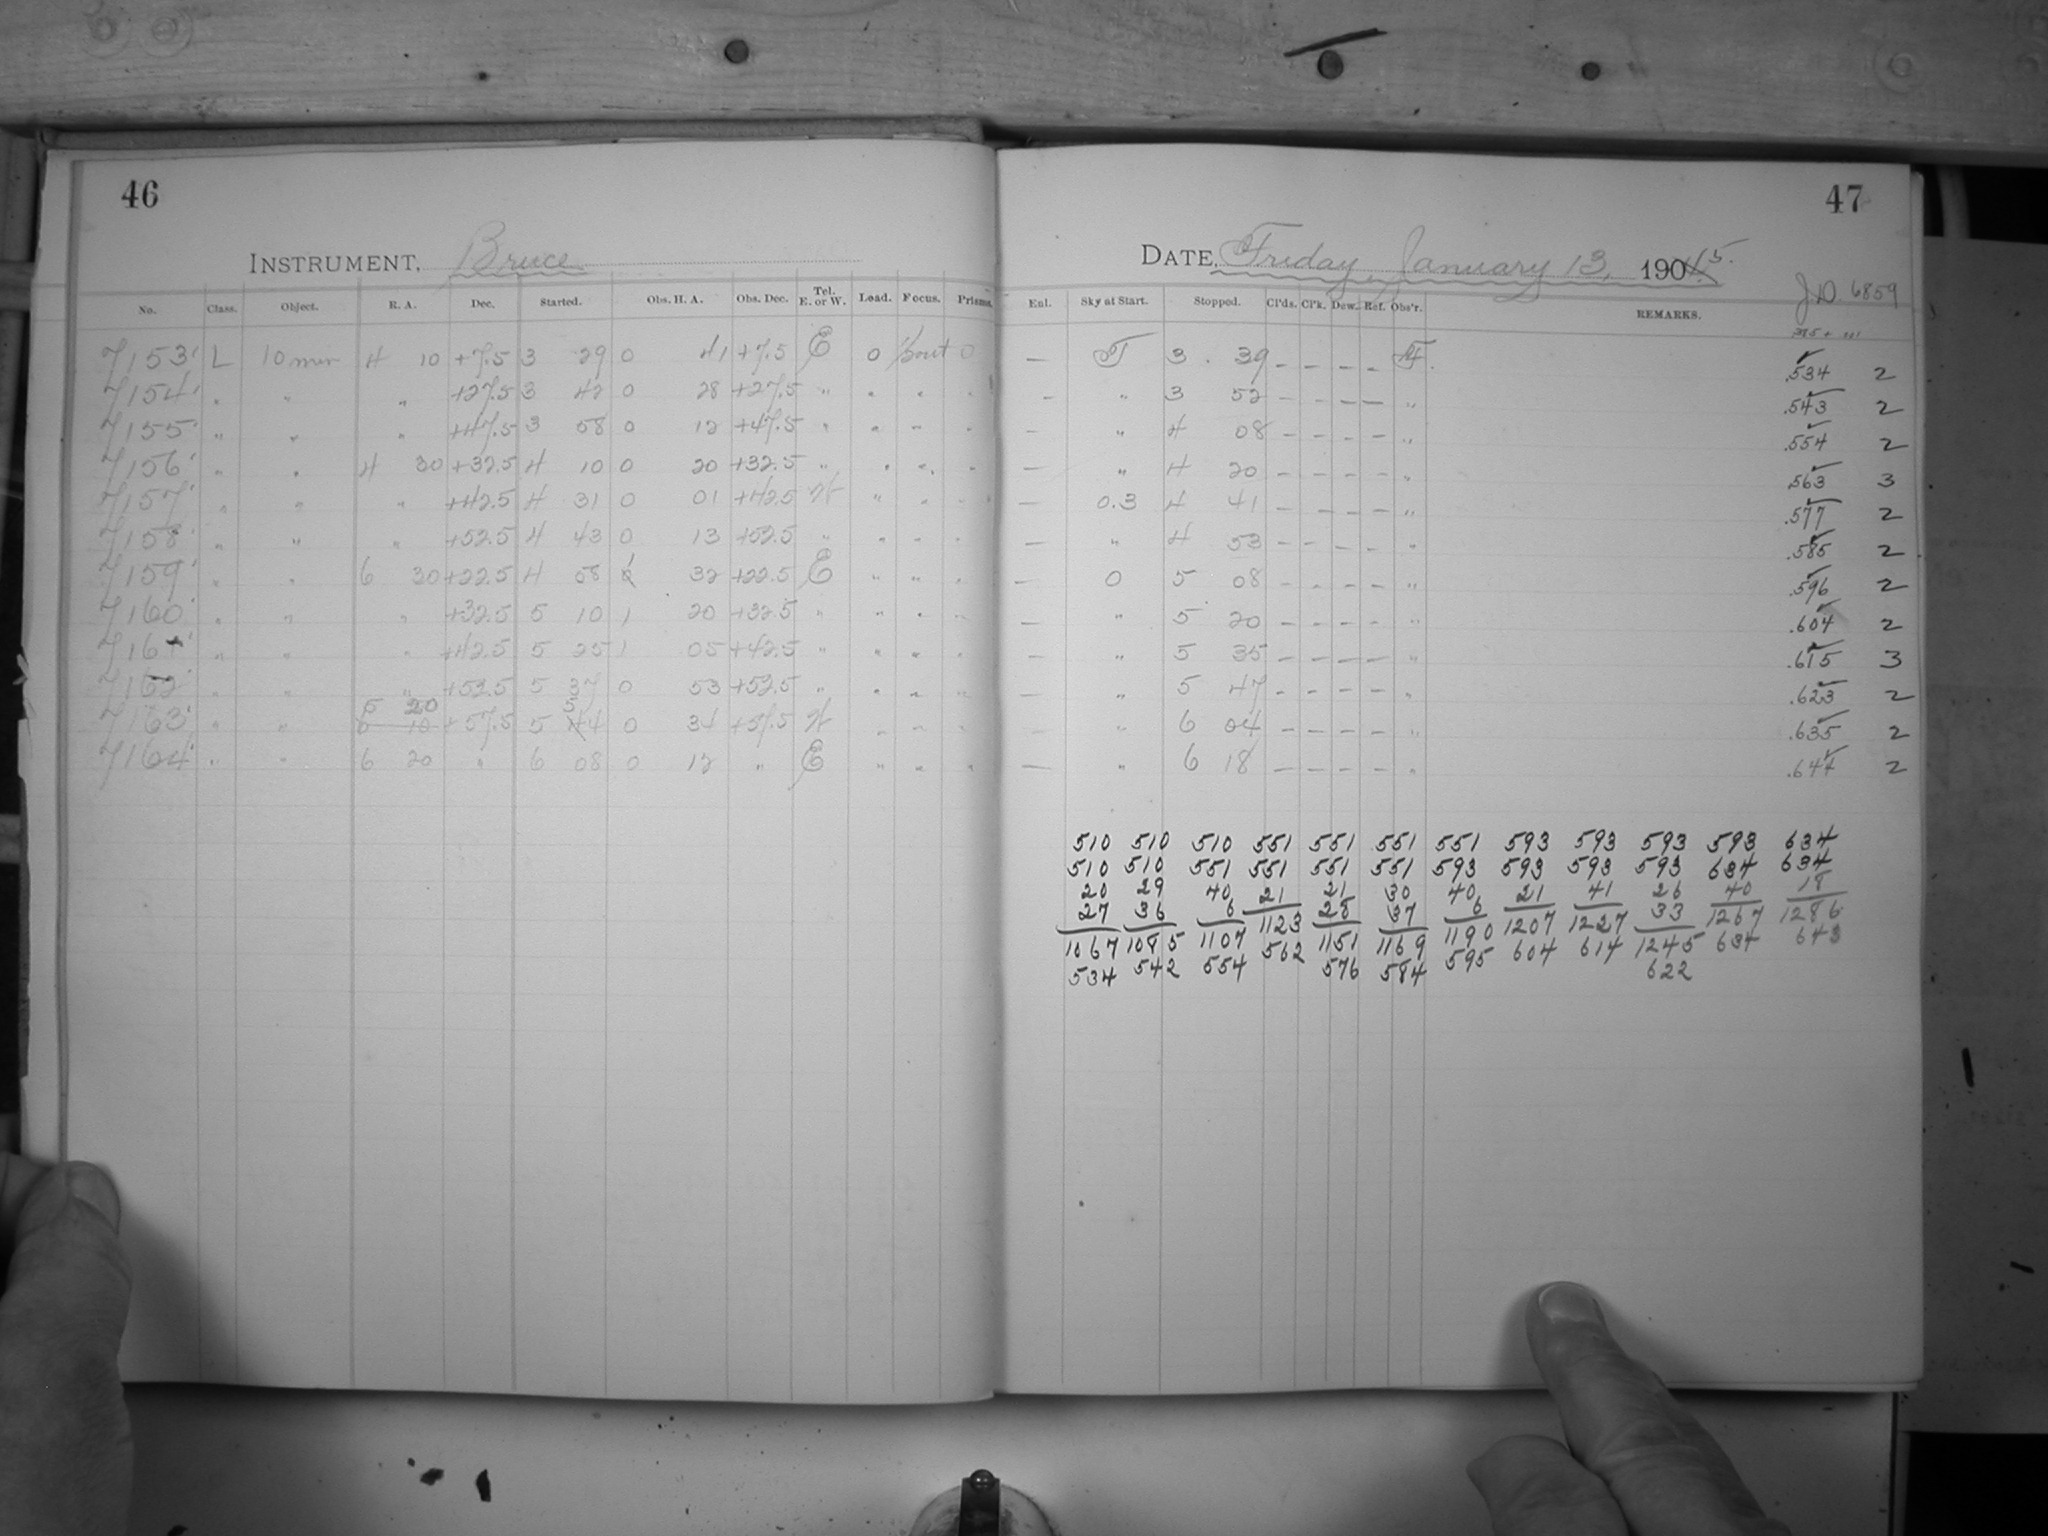 46
INSTRUMENT, Bruce
No. Class. Object. R. A. Dec. Started. Obs. H. A. Obs. Dec. Tel. E. or W. Load. Focus. Prisms.
7153 L 10 min 4 10 +7.5 3 29 0 41 +7.5 E 0 0
7154 " " " +27.5 3 42 0 28 +27.5 " " " "
7155 " " " +47.5 3 58 0 12 +47.5 " " " "
7156 " " 4 30 +32.5 4 10 0 20 +32.5 " " " "
7157 " " " +42.5 4 31 0 01 +42.5 W " " "
7158 " " " +52.5 4 43 0 13 +52.5 " " " "
7159 " " 6 30 +22.5 4 58 1 32 +22.5 E " " "
7160 " " " +32.5 5 10 1 20 +32.5 " " " "
7161 " " " +42.5 5 25 1 05 +42.5 " " " "
7162 " " " +52.5 5 37 0 53 +52.5 " " " "
5 20 5
7163 " " 6 10 +57.5 5 44 0 34 +57.5 W " " "
7164 " " 6 20 " 6 08 0 12 " E " " "
47
DATE, Friday, January 13, 1904 5.
J.D. 6859
Enl. Sky at Start. Stopped. Cl'ds. Cl'k. Dew. Ref. Obs'r. REMARKS.
— 3 39 – – – – .534 2
– " 3 52 – – – – " .543 2
– " 4 08 – – – – " .554 2
— " 4 20 – – – – " .563 3
— 0.3 4 41 – – – – " .577 2
— " 4 53 – – – – " .585 2
— 0 5 08 – – – – " .596 2
— " 5 20 – – – – " .604 2
— " 5 35 – – – – " .615 3
— " 5 47 – – – – " .623 2
— " 6 04 – – – – " .635 2
— " 6 18 – – – – " .644 2
510 510 510 551 551 551 551 593 593 593 593 634
510 510 551 551 551 551 593 593 593 593 634 634
20 29 40 21 21 30 40 21 41 26 40 18
27 36 6 1123 28 37 6 1207 1227 33 1267 1286
1067 1085 1107 562 1151 1169 1190 604 614 1245 634 643
534 542 554 576 584 595 622